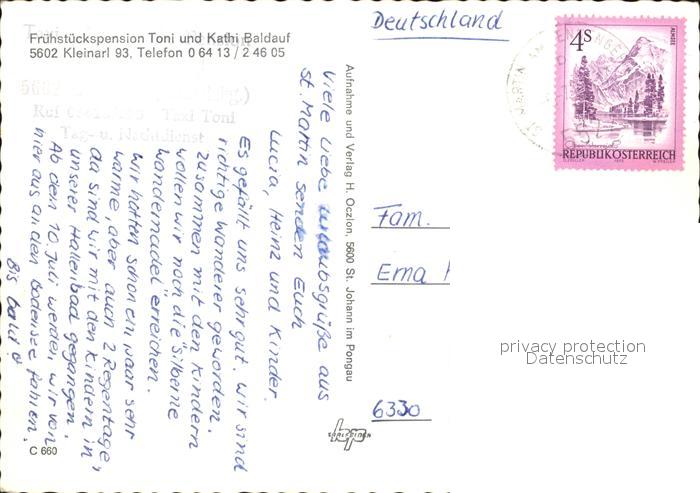 Frühstückspension Toni und Kathi Baldauf
5602 Kleinarl 93, Telefon 0 64 13 / 2 46 05
Taxi Toni
Tag- u. Nachtdienst
Viele liebe Urlaubsgrüße aus
St. Martin senden Euch
Lucia, Heinz und Kinder.
Es gefällt uns sehr gut. Wir sind
richtige Wanderer geworden.
Zusammen mit den Kindern
wollen wir noch die "Silberne
Wandernadel" erreichen.
Wir hatten schon ein paar sehr
warme, aber auch 2 Regentage,
da sind wir mit den Kindern in
unserer Hallenbad gegangen.
Ab dem 10. Juli werden wir von
hier aus an den Bodensee fahren.
Bis bald!
C 660
Aufnahme und Verlag H. Oczlon, 5600 St. Johann im Pongau
Deutschland
4S
ALMSEE
REPUBLIK ÖSTERREICH
Fam.
Erna
6330
privacy protection
Datenschutz